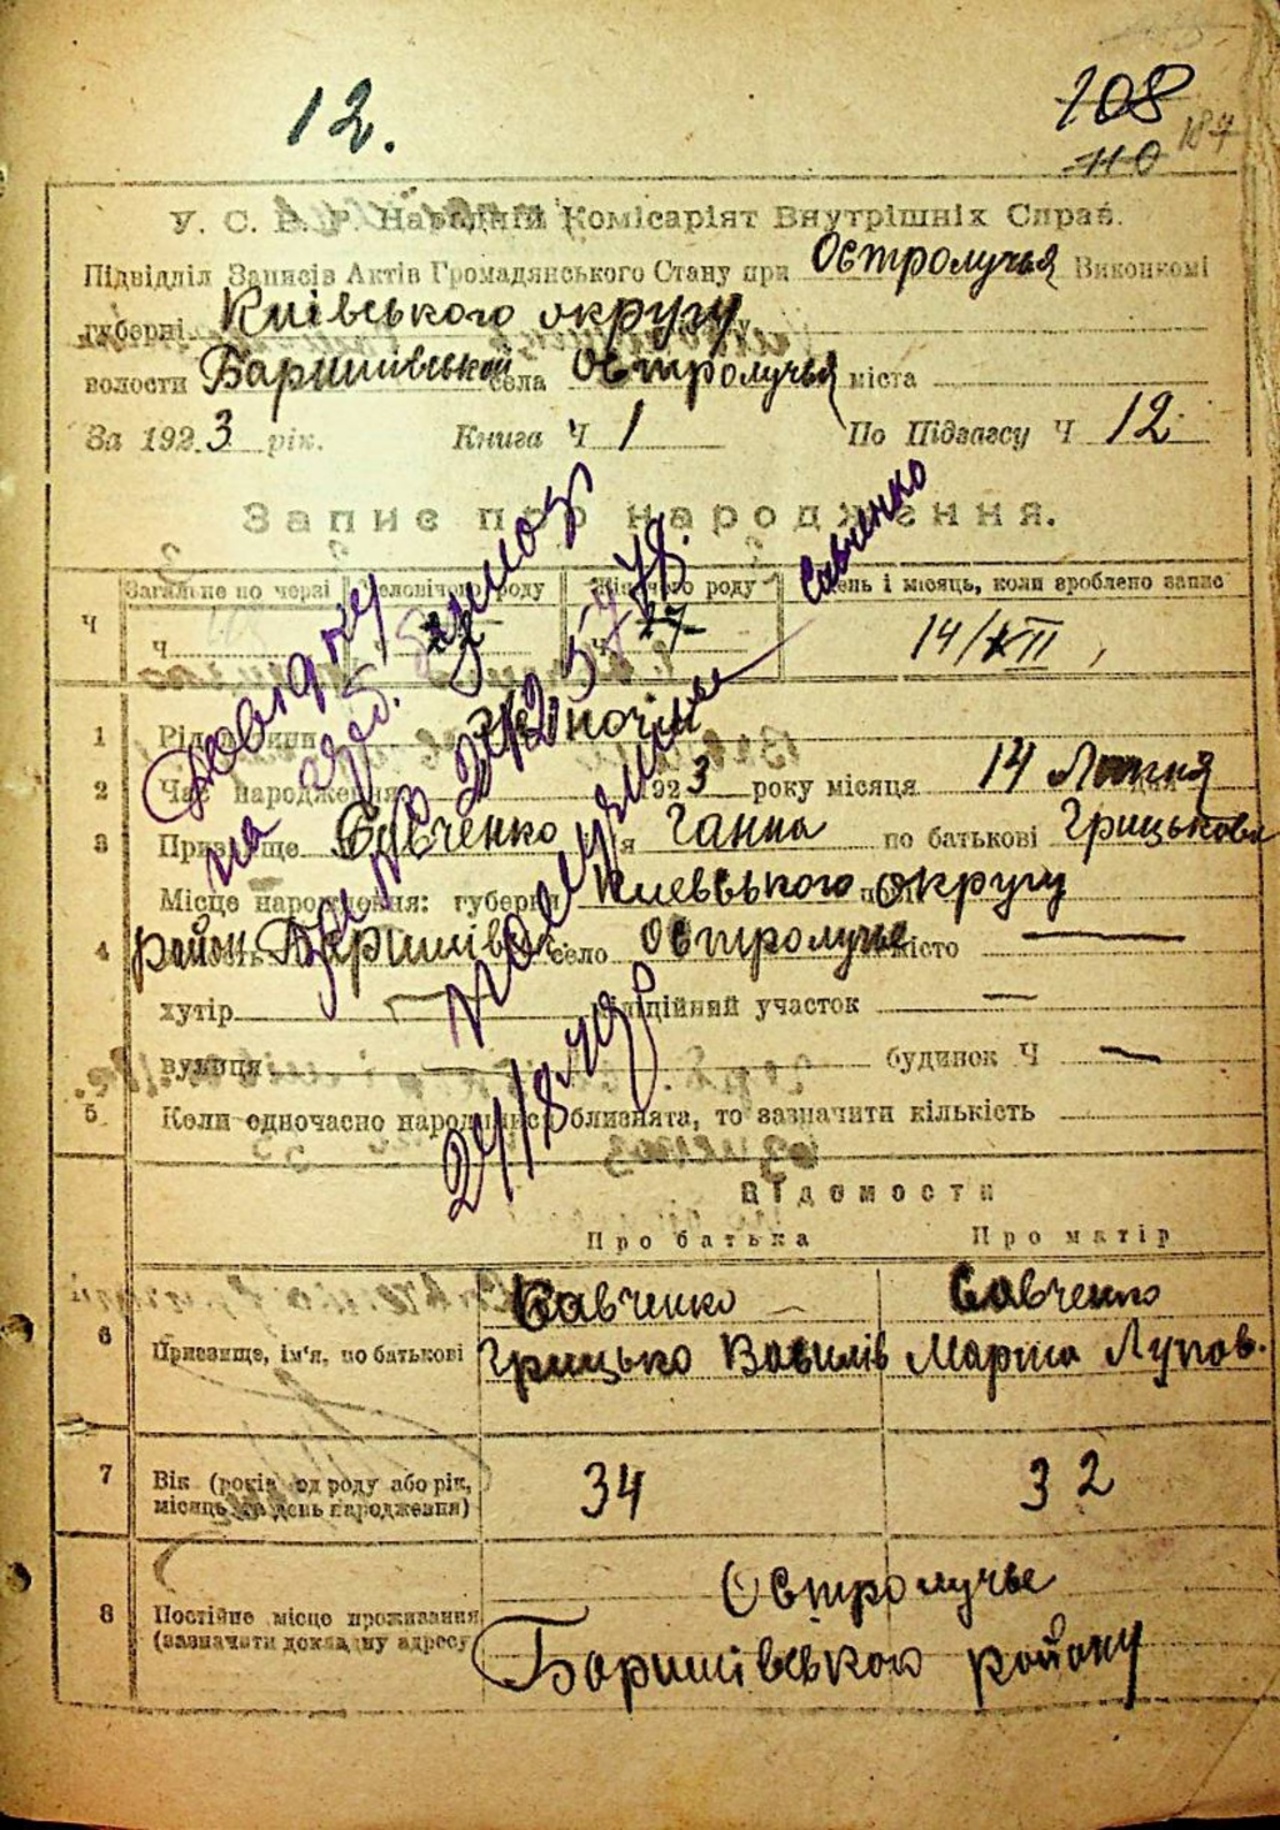 12.
108
110
187
У. С. Р. Р. Народній Комісаріят Внутрішніх Справ.
Підвідділ Записів Актів Громадянського Стану при Остролучья Виконкомі
губерні Київського округу
волости Баришівської села Остролучья міста
За 1923 рік. Книга Ч 1 По Підзагсу Ч 12
Запис про народження.
Загальне по черзі Чоловічого роду Жіночого роду День і місяць, коли зроблено запис
Ч Ч 27 14/XII
1 Жіночій
2 Час народження 1923 року місяця 14 Липня дня
3 Призвище Савченко Ганна по батькові Грицькова
Місце народження: губерня Киевського округу
4 район Баришівс. село Остролучье місто —
хутір — міліційний участок —
вулиця — будинок Ч —
5 Коли одночасно народились близнята, то зазначити кількість
Довідку
на
получила Савченко
24/8.
Відомости
Про батька Про матір
Савченко Савченко
6 Призвище, ім'я, по батькові Грицько Василів Мария Лупов.
7 Вік (років од роду або рік, 34 32
місяць та день народження)
Остролучье
8 Постійне місце проживання
(зазначити докладну адресу Баришівського району